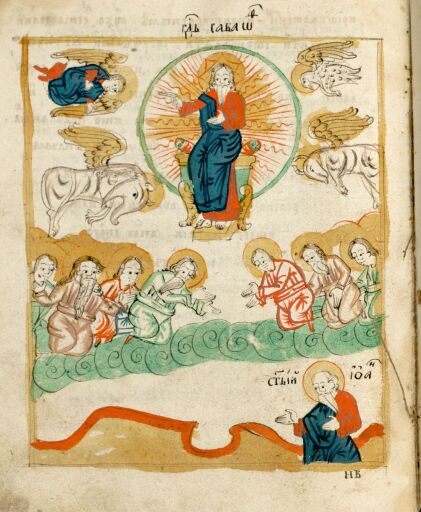 гдь саваѡѳ
стый іѡан
нв